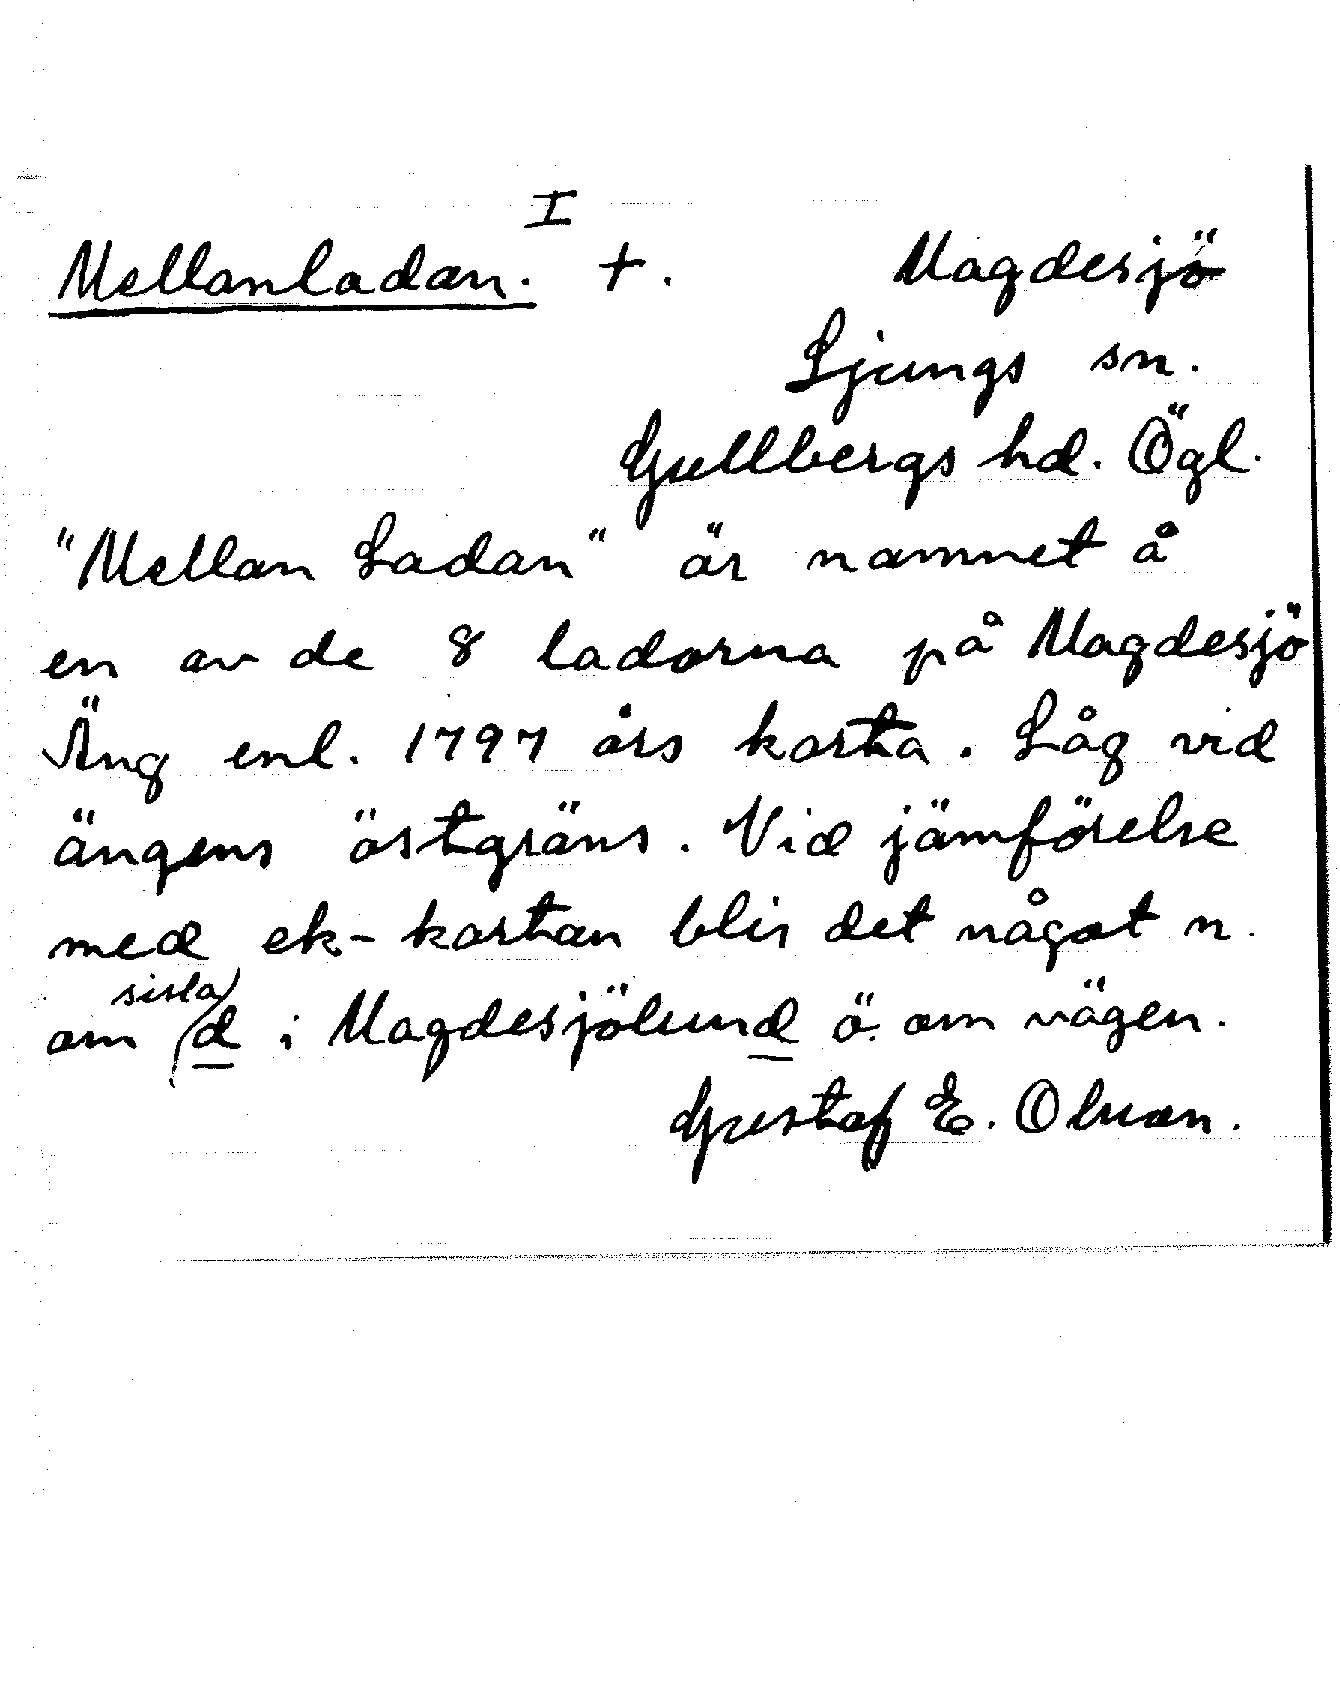 Mellanladan. I +. Magdesjö
Ljungs sn.
Gullbergs hd. Ögl.
"Mellan Ladan" är namnet å
en av de 8 ladorna på Magdesjö
Äng enl. 1797 års karta. Låg vid
ängens östgräns. Vid jämförelse
med ek-kartan blir det något n.
om sista d i Magdesjölund ö. om vägen.
Gustaf E. Olsson.